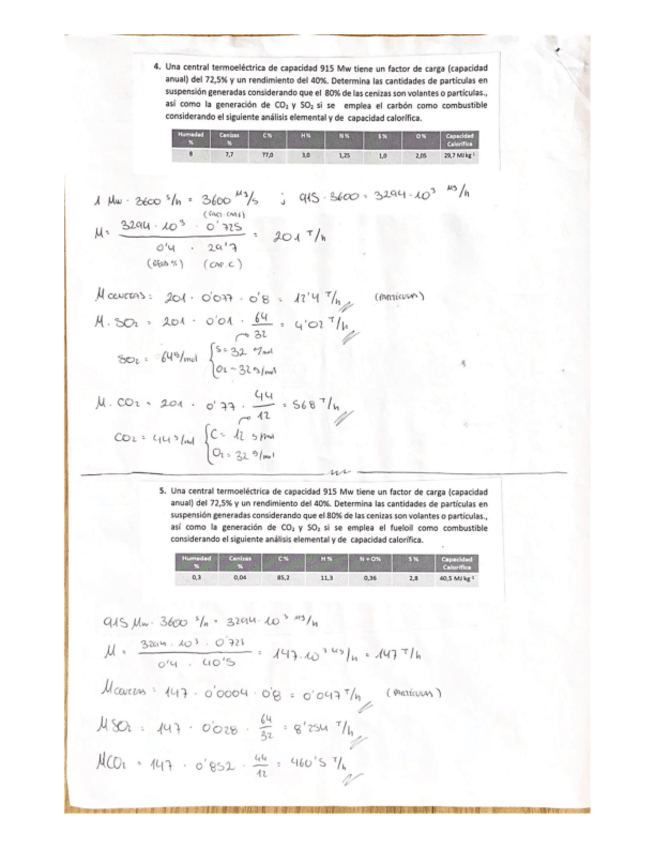 4. Una central termoeléctrica de capacidad 915 Mw tiene un factor de carga (capacidad
anual) del 72,5% y un rendimiento del 40%. Determina las cantidades de partículas en
suspensión generadas considerando que el 80% de las cenizas son volantes o partículas.,
así como la generación de CO₂ y SO₂ si se emplea el carbón como combustible
considerando el siguiente análisis elemental y de capacidad calorífica.
Humedad % Cenizas % C% H% N% S% O% Capacidad Calorífica
8 7,7 77,0 3,0 1,25 1,0 2,05 29,7 MJ kg⁻¹
1 Mw · 3600 s/h = 3600 MJ/s ; 915 · 3600 = 3294 · 10³ MJ/h
M = 3294 · 10³ · 0'725 / 0'4 · 29'7 = 201 T/h
M cenizas: 201 · 0'077 · 0'8 = 12'4 T/h (partículas)
M. SO₂ = 201 · 0'01 · 64/32 = 4'02 T/h
SO₂ = 64 g/mol { S = 32 g/mol
O₂ = 32 g/mol
M. CO₂ = 201 · 0'77 · 44/12 = 568 T/h
CO₂ = 44 g/mol { C = 12 g/mol
O₂ = 32 g/mol
5. Una central termoeléctrica de capacidad 915 Mw tiene un factor de carga (capacidad
anual) del 72,5% y un rendimiento del 40%. Determina las cantidades de partículas en
suspensión generadas considerando que el 80% de las cenizas son volantes o partículas.,
así como la generación de CO₂ y SO₂ si se emplea el fueloil como combustible
considerando el siguiente análisis elemental y de capacidad calorífica.
Humedad % Cenizas % C% H% N + O% S% Capacidad Calorífica
0,3 0,04 85,2 11,3 0,36 2,8 40,5 MJ kg⁻¹
915 Mw · 3600 s/h = 3294 · 10³ MJ/h
M = 3294 · 10³ · 0'725 / 0'4 · 40'5 = 147 · 10³ kg/h = 147 T/h
M cenizas = 147 · 0'0004 · 0'8 = 0'047 T/h (partículas)
M SO₂ = 147 · 0'028 · 64/32 = 8'254 T/h
M CO₂ = 147 · 0'852 · 44/12 = 460'5 T/h